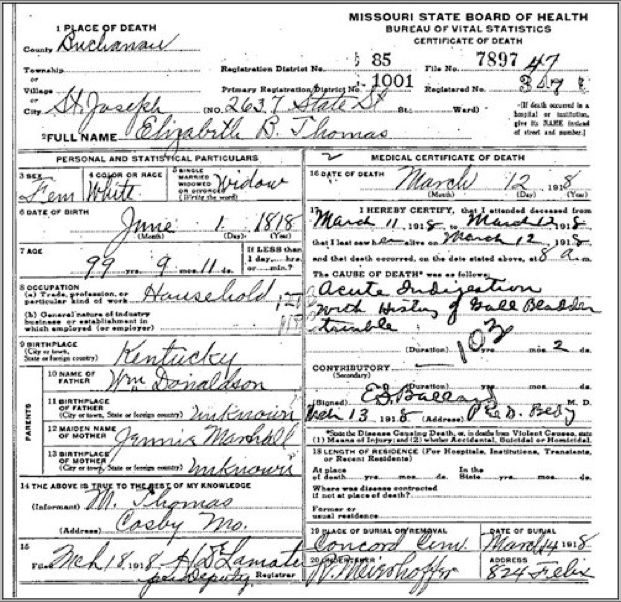 MISSOURI STATE BOARD OF HEALTH
BUREAU OF VITAL STATISTICS
CERTIFICATE OF DEATH
1 PLACE OF DEATH
County Buchanan
Township or Village
City St. Joseph (NO. 2637 State St St.; Ward)
Registration District No. 85 File No. 7897 47
Primary Registration District No. 1001 Registered No.
(If death occurred in a hospital or institution, give its NAME instead of street and number.)
2 FULL NAME Elizabeth B. Thomas
PERSONAL AND STATISTICAL PARTICULARS
3 SEX Fem
4 COLOR OR RACE White
5 SINGLE MARRIED WIDOWED OR DIVORCED (Write the word) Widow
6 DATE OF BIRTH June 1 1818
(Month) (Day) (Year)
7 AGE 99 yrs. 9 mos. 11 ds.
If LESS than 1 day, hrs. or min.?
8 OCCUPATION
(a) Trade, profession, or particular kind of work Household
(b) General nature of industry business or establishment in which employed (or employer)
9 BIRTHPLACE
(City or town, State or foreign country) Kentucky
PARENTS
10 NAME OF FATHER Wm Donaldson
11 BIRTHPLACE OF FATHER
(City or town, State or foreign country) Unknown
12 MAIDEN NAME OF MOTHER Jennie Marshall
13 BIRTHPLACE OF MOTHER
(City or town, State or foreign country) Unknown
14 THE ABOVE IS TRUE TO THE BEST OF MY KNOWLEDGE
(Informant) M. Thomas
(Address) Cosby Mo.
15
Filed Mch 18, 1918 H. DeLamater
per Deputy Registrar
2 MEDICAL CERTIFICATE OF DEATH
16 DATE OF DEATH March 12 1918
(Month) (Day) (Year)
17 I HEREBY CERTIFY, that I attended deceased from
March 11 1918 to March 12 1918
that I last saw her alive on March 12, 1918
and that death occurred, on the date stated above, at 8 a m.
The CAUSE OF DEATH* was as follows:
Acute Indigestion
with History of Gall Bladder
trouble
103
(Duration) yrs. mos. 2 ds.
CONTRIBUTORY
(Secondary)
(Duration) yrs. mos. ds.
(Signed) M. D.
Mch 13 1918 (Address)
*State the Disease Causing Death, or, in deaths from Violent Causes, state
(1) Means of Injury; and (2) whether Accidental, Suicidal or Homicidal.
18 LENGTH OF RESIDENCE (For Hospitals, Institutions, Transients, or Recent Residents)
At place of death yrs. mos. ds. In the State yrs. mos. ds.
Where was disease contracted
if not at place of death?
Former or
usual residence
19 PLACE OF BURIAL OR REMOVAL Concord Cem.
DATE OF BURIAL March 14 1918
20 UNDERTAKER Meierhoffer
ADDRESS 824 Felix